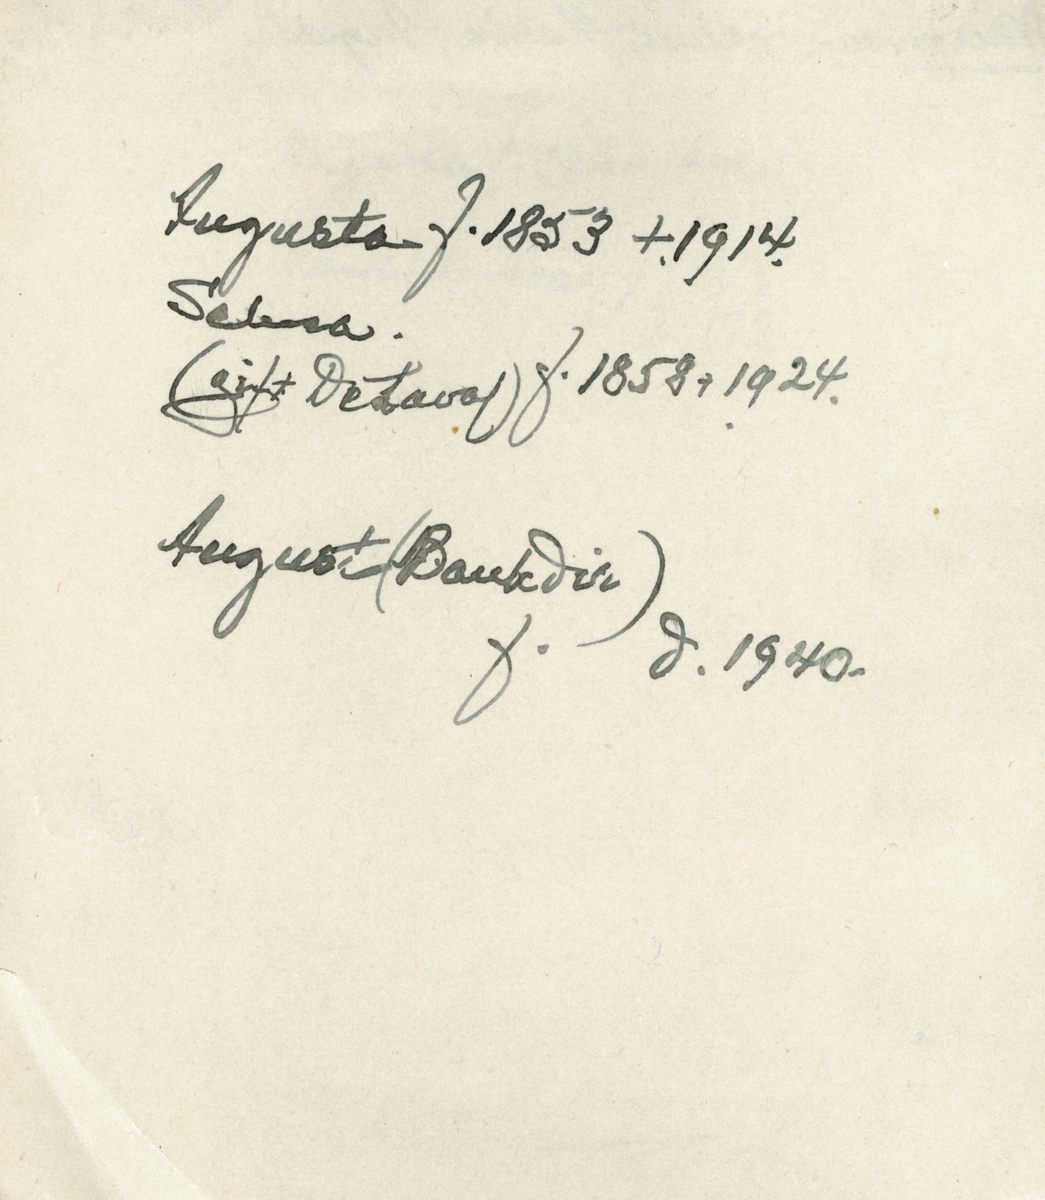 Augusta f. 1853 +.1914.
Selma.
(gift DeLaval) f. 1858 + 1924.
August (Bankdir)
f. d. 1940.